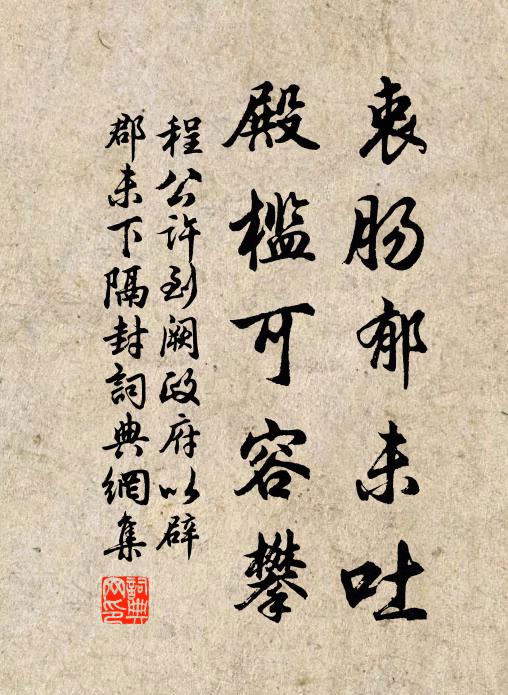 衷肠郁未吐
殿槛可容攀
程公许到阙政府以辟
郡未下隔封詞典網集
詞典网印